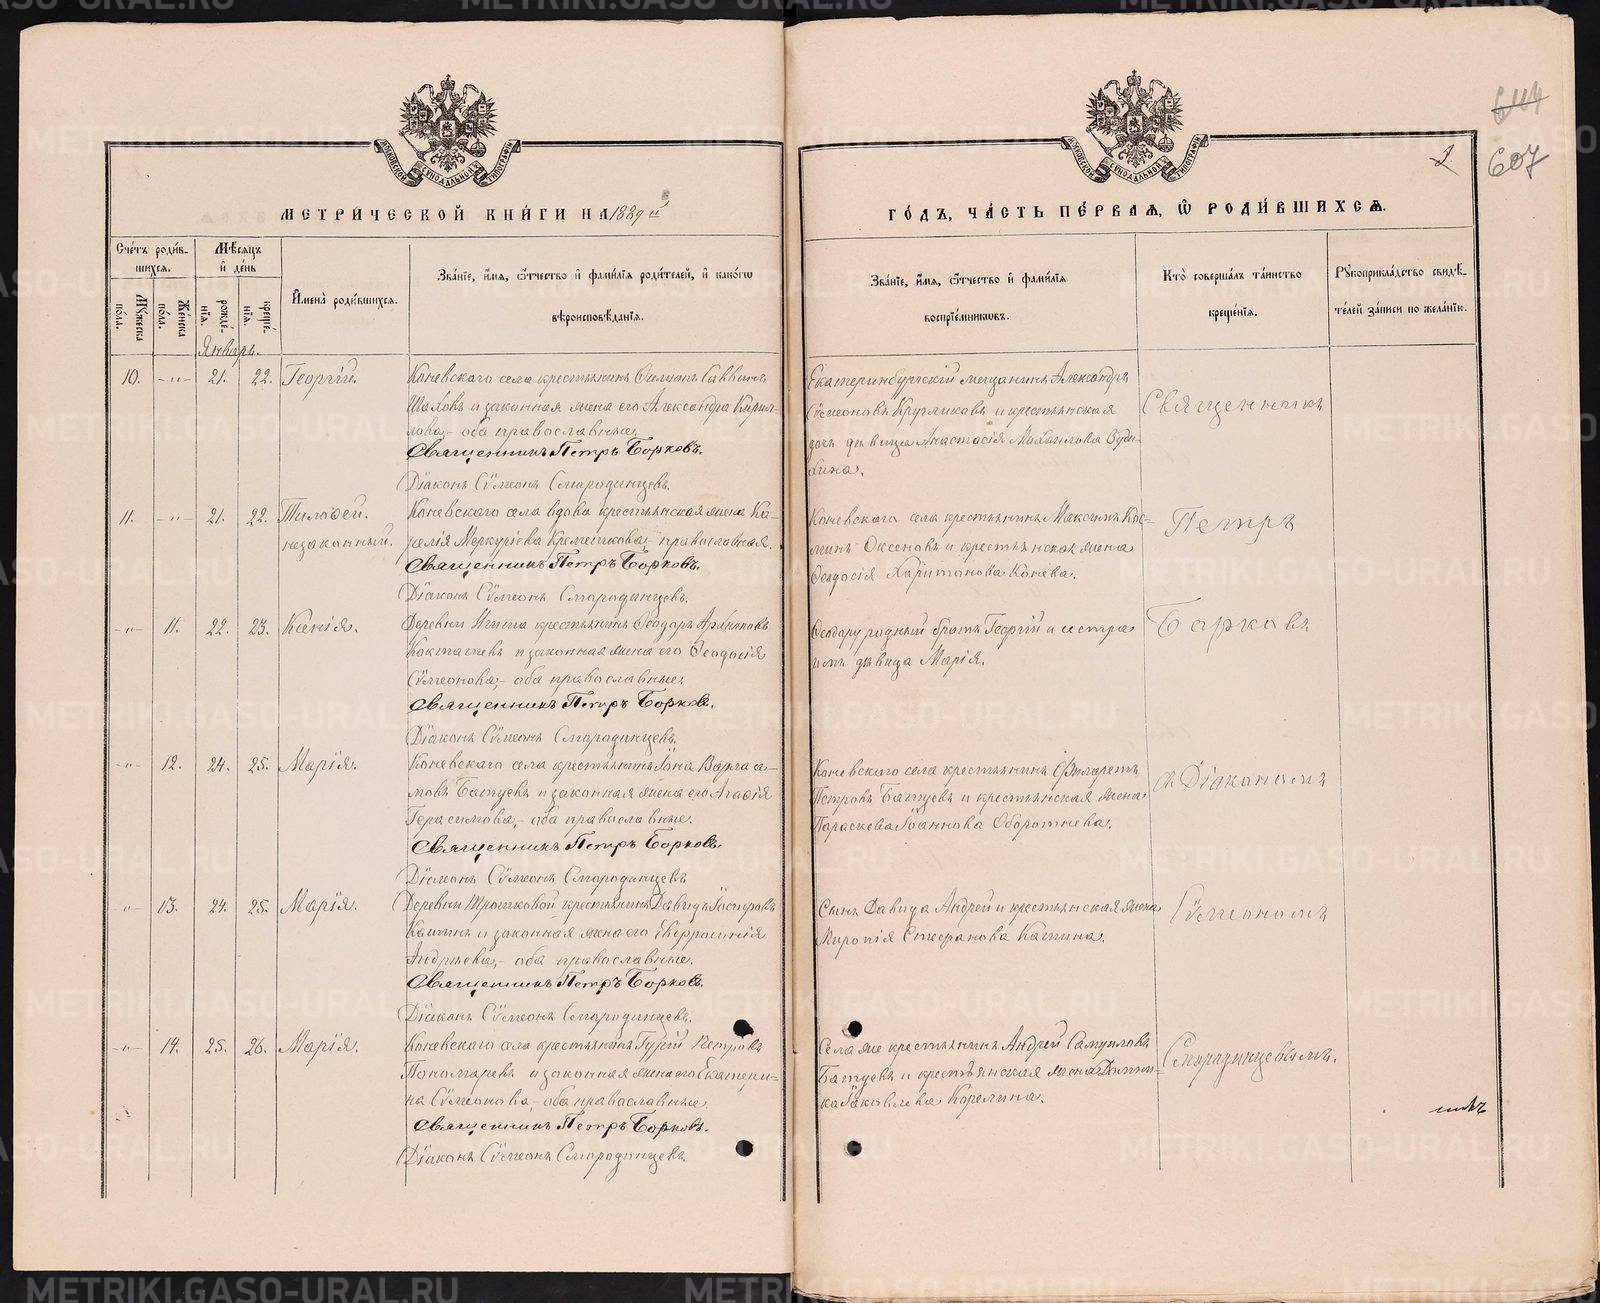 614
607
МЕТРИ́ЧЕСКОЙ КНИ́ГИ НА 1889 й
ГО́ДЪ, ЧА́СТЬ ПЕ́РВАѦ, Ѡ҆ РОДИ́ВШИХСѦ.
Сче́тъ роди́в-
шихся.
Мѣ́сяцъ
и҆ де́нь
Мꙋ́жеска
по́ла.
Же́нска
по́ла.
рожде́-
нїѧ.
креще́-
нїѧ.
И҆мена̀ роди́вшихся.
Зва́нїе, и҆́мѧ, ѻ҆́тчество и҆ фами́лїѧ роди́телей, и҆ како́гѡ
вѣроисповѣ́данїѧ.
Зва́нїе, и҆́мѧ, ѻ҆́тчество и҆ фами́лїѧ
воспрїе́мникѡвъ.
Кто̀ соверша́лъ та́инство
креще́нїѧ.
Рꙋкоприкла́дство свидѣ́-
телей за́писи по жела́нїю.
Январь.
10. -"- 21. 22. Георгій.
Коневскаго села крестьянинъ Филиппъ Саввинъ
Шаховъ и законная жена его Александра Кирил-
лова,- оба православные.
Священникъ Петръ Борковъ.
Діаконъ Сѵмеонъ Смородинцевъ.
Екатеринбургскій мещанинъ Александръ
Сѵмеоновъ Кругликовъ и крестьянская
дочь девица Анастасія Михаилова
Священникъ
11. -"- 21. 22. Тимоѳей.
незаконный.
Коневскаго села вдова крестьянская жена Ка-
релія Меркуріева Клементкова,- православная.
Священникъ Петръ Борковъ.
Діаконъ Сѵмеонъ Смородинцевъ.
Коневскаго села крестьянинъ Максимъ Кос-
минъ Оксеновъ и крестьянская жена
Ѳеодосія Харитонова Конева.
Петръ
-"- 11. 22. 23. Ксенія.
Деревни крестьянинъ Ѳеодоръ Архиповъ
Кокташевъ и законная жена его Ѳеодосія
Сѵмеонова,- оба православные.
Священникъ Петръ Борковъ.
Діаконъ Сѵмеонъ Смородинцевъ.
Ѳеодору родный братъ Георгій и сестра
имъ девица Марія.
Борковъ
-"- 12. 24. 25. Марія.
Коневскаго села крестьянинъ Іона Варлаа-
мовъ Батуевъ и законная жена его Агафія
Герасимова,- оба православные.
Священникъ Петръ Борковъ.
Діаконъ Сѵмеонъ Смородинцевъ
Коневскаго села крестьянинъ Филаретъ
Петровъ Батуевъ и крестьянская жена
Параскева Іоаннова Оборотнева.
съ Діакономъ
-"- 13. 24. 25. Марія.
Деревни Шрошковой крестьянинъ Давидъ Несторовъ
Катинъ и законная жена его Евфросинія
Андреева,- оба православные.
Священникъ Петръ Борковъ.
Діаконъ Сѵмеонъ Смородинцевъ.
Сынъ Давида Андрей и крестьянская жена
Миропія Стефанова Катина.
Сѵмеономъ
-"- 14. 25. 26. Марія.
Коневскаго села крестьянинъ Гурій Петровъ
Пономаревъ и законная жена его Екатери-
на Сѵмеонова,- оба православные.
Священникъ Петръ Борковъ.
Діаконъ Сѵмеонъ Смородинцевъ.
Села же крестьянинъ Андрей Самуиловъ
Батуевъ и крестьянская жена Домни-
ка Іаковлева Корелина.
Смородинцевымъ.
METRIKI.GASO-URAL.RU